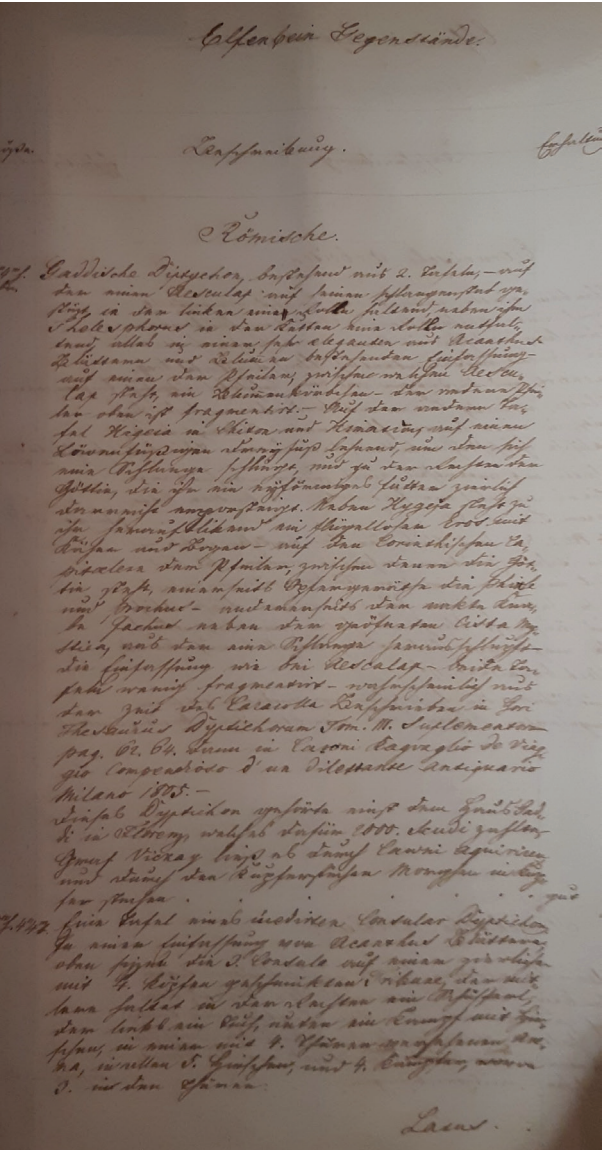 Elfenbein Gegenstände.
Beschreibung.
Erhaltun
Römische.
Gaddische Diptychon, bestehend aus 2. Tafeln, – auf
der einen Aesculap auf seinen Schlangenstab ge-
stüzt, in der linken eine Rolle haltend, neben ihm
Thelesphorus in der Kutten eine Rolle entfal-
tend, alles in einer sehr eleganten aus Acanthus
Blättern und Blumen bestehenden Einfassung –
auf einen der Pfeiler, zwischen welchen Aescu-
lap steht, ein Blumenkörbchen – der andere Pfei-
ler oben ist fragmentirt. – Auf der andern Ta-
fel Higeia in Chiton und Himation, auf einen
Löwenfüßigen Dreyfuß lehnend, um den sich
eine Schlange schlingt, und zu der Rechten der
Göttin, die ihr ein eyförmiges
emporsteigt. Neben Hygeja steht zu
ihr heraufblikend ein flügelloser Eros mit
und Bogen – auf den Corinthischen Ca-
pitaelern der Pfeiler, zwischen denen die Göt-
tin steht, einerseits Opfergeräthe die Phiale
und Prochus – andererseits der nakte Kna-
be Jachus neben der geöfneten Cista My-
stica, aus der eine Schlange herausschlupft –
die Einfassung wie bei Aesculap – beide Ta-
feln wenig fragmentirt – wahrscheinlich aus
der Zeit des Caracalla Beschrieben in Gori
Thesaurus Dyptichorum Tom. III. Suplementorum
pag. 62. 64. dann in Caroni Ragvaglio de Viag-
gio Compendioso d'un dilettante antiquario
Milano 1805. –
Dieses Dyptichon gehörte einst dem Haus Gad-
di in Florenz, welches dafür 2000. Scudi zahlte.
Graf Viczay ließ es durch Caroni
und durch den Kupferstecher Morghen in Kup-
fer stechen . . . . . gut
Eine Tafel eines inedirten Consular Dyptichon
In einer Einfassung von Acanthus Blättern
oben sizen die 3. Consuln auf einem zierlichen
mit 4. Köpfen geschmükten Tribunal, der mit-
lere haltet in der Rechten ein
der links ein Tuch, unten ein Kampf mit Hir-
schen, in einer mit 4. Thüren versehenen Are-
na, in allen 5. Hirschen, und 4. Kämpfer, wovon
3. in den Thüren.
Latus.